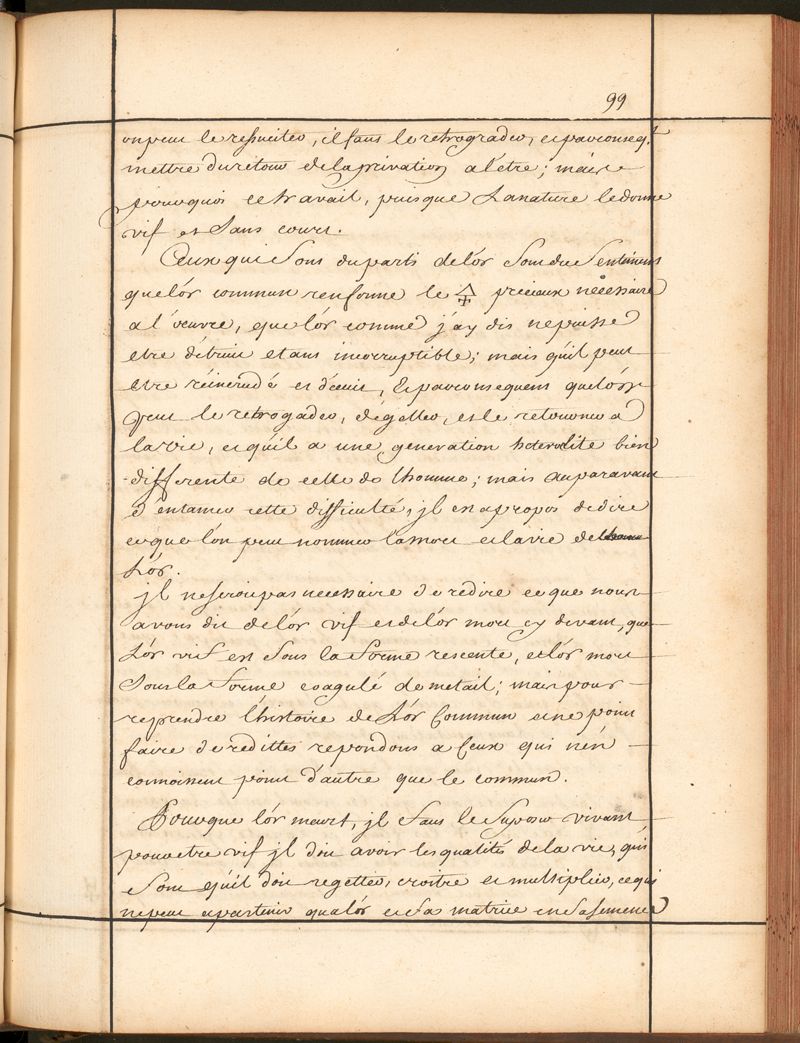 99
on peut le resusciter, il faut le retrograder, et par conseqt.
mettre du retour de la privation a l'etre; mais
pourquoi ce travail, puisque la nature le donne
vif et sans cours.
Ceux qui sont du parti de lór sont du sentiment
que lór commun renferme le 🜍 precieux necessaire
a l'oeuvre, que lór comme j'ay dis ne puisse
etre détruit etant incorruptible; mais qu'il peut
etre réincrudé et, Et par consequent que lór
peut le retrogader, végetter, et le retourner a
la vie, et qu'il a une generation bien
differente de celle de lhomme; mais auparavant
d'entamer cette difficulté, jl est apropos de dire
ce que lón peut nommer la mort et la vie de
Lór.
jl ne seroit pas necessaire de redire ce que nous
avons dit de lór vif et de lór mort cy devant, que
Lór vif est sous la forme, et lór mort
sous la forme coagulé de metail; mais pour
reprendre l'histoire de Lór Commun et ne point
faire de redittes repondons a Ceux qui n'en
connoissent point d'autre que le commun.
Pour que lór meurt, jl faut le suposer vivant
pour etre vif jl doit avoir les qualités de la vie, qui
sont qu'il doit vegetter, croitre et multiplier, ce qui
ne peut apartenir qu'a lór et sa matrice en sa semence